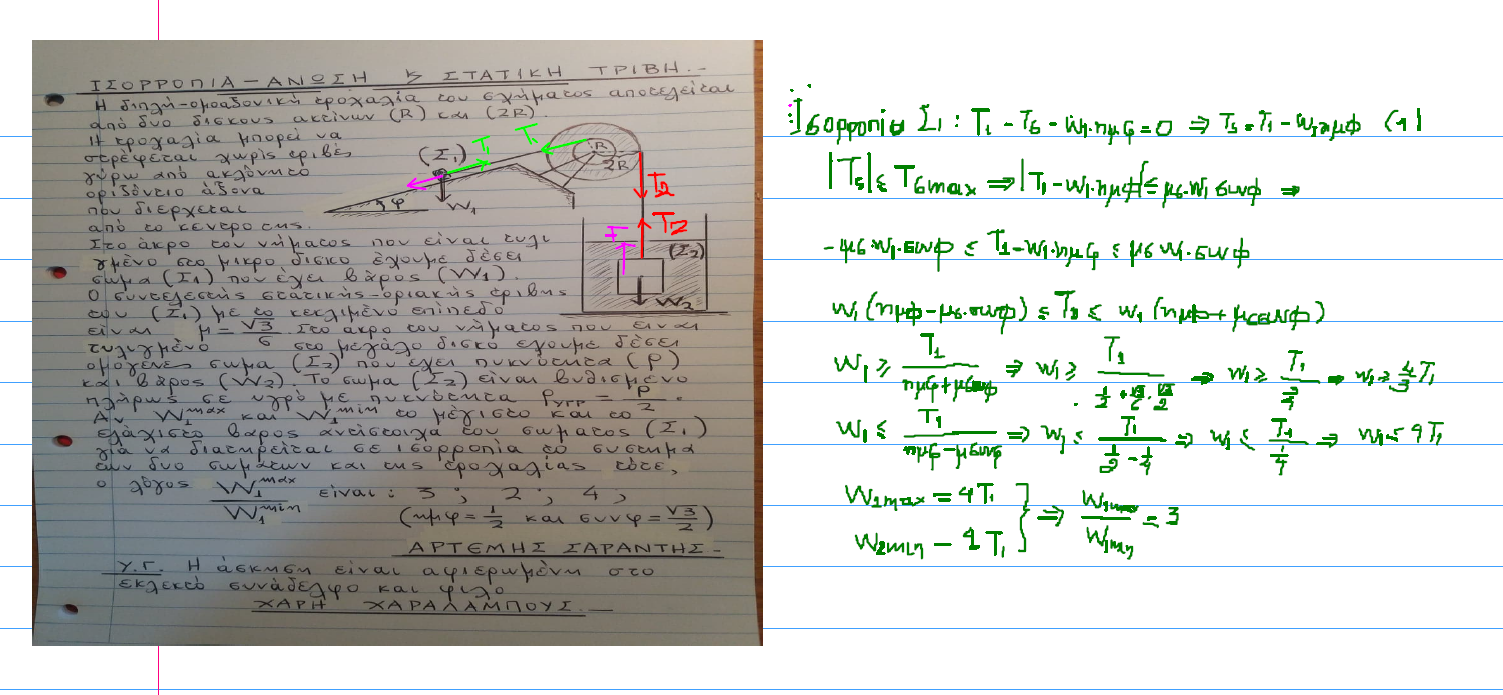 ΙΣΟΡΡΟΠΙΑ – ΑΝΩΣΗ & ΣΤΑΤΙΚΗ ΤΡΙΒΗ. –
Η διπλή-ομοαξονική τροχαλία του σχήματος αποτελείται
από δυο δίσκους ακτίνων (R) και (2R).
Η τροχαλία μπορεί να
στρέφεται χωρίς τριβές
γύρω από ακλόνητο
οριζόντιο άξονα
που διέρχεται
από το κέντρο της.
Στο άκρο του νήματος που είναι τυλι
γμένο στο μικρό δίσκο έχουμε δέσει
σώμα (Σ1) που έχει βάρος (W1).
Ο συντελεστής στατικής-οριακής τριβής
του (Σ1) με το κεκλιμένο επίπεδο
είναι μ = √3/6 Στο άκρο του νήματος που είναι
τυλιγμένο στο μεγάλο δίσκο έχουμε δέσει
ομογενές σώμα (Σ2) που έχει πυκνότητα (ρ)
και βάρος (W2). Το σώμα (Σ2) είναι βυθισμένο
πλήρως σε υγρό με πυκνότητα ρΥΓΡ = ρ/2.
Αν W1max και W1min το μέγιστο και το
ελάχιστο βάρος αντίστοιχα του σώματος (Σ1)
για να διατηρείται σε ισορροπία το σύστημα
των δυο σωμάτων και της τροχαλίας τότε,
ο λόγος W1max/W1min είναι: 3 ; 2 ; 4 ;
(ημφ = 1/2 και συνφ = √3/2)
ΑΡΤΕΜΗΣ ΣΑΡΑΝΤΗΣ –
Υ.Γ. Η άσκηση είναι αφιερωμένη στο
εκλεκτό συνάδελφο και φίλο
ΧΑΡΗ ΧΑΡΑΛΑΜΠΟΥΣ. –
(Σ1)
T1
T1
R
2R
φ
W1
T2
T2
(Σ2)
W2
Ισορροπια Σ1 : T1 - Tσ - W1.ημφ = 0 ⇒ Tσ = T1 - W1ημφ (1)
|Tσ| ≤ Tσmax ⇒ |T1 - W1.ημφ| ≤ μσ.W1 συνφ ⇒
- μσ W1.συνφ ≤ T1 - W1.ημφ ≤ μσ W1.συνφ
W1 (ημφ - μσ.συνφ) ≤ T1 ≤ W1 (ημφ + μσσυνφ)
W1 ≥ T1/(ημφ + μσσυνφ) ⇒ W1 ≥ T1/(1/2 + √3/6 . √3/2) ⇒ W1 ≥ T1/(3/4) ⇒ W1 ≥ 4/3 T1
W1 ≤ T1/(ημφ - μσσυνφ) ⇒ W1 ≤ T1/(1/2 - 1/4) ⇒ W1 ≤ T1/(1/4) ⇒ W1 ≤ 4T1
W1max = 4T1
} ⇒ W1max/W1min = 3